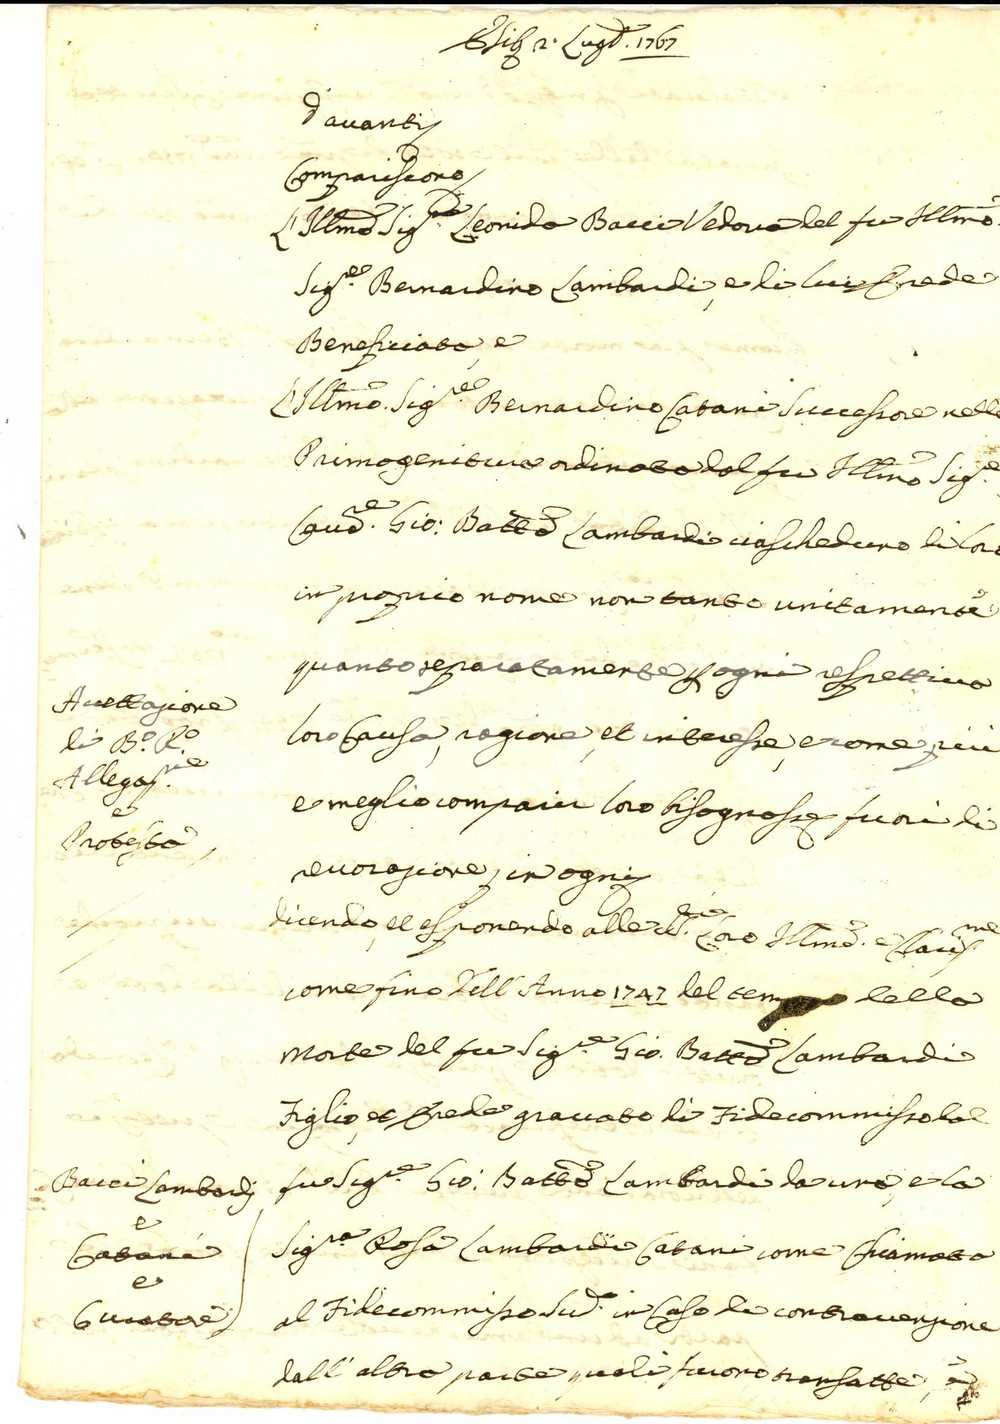 2. Lugo. 1767
Davanti
Compariscono
L'Illma. Sigra. Leonida Bacci Vedova del fu Illmo.
Sigre. Bernardino Lambardi, e di lui Erede
Beneficiata, e
L'Illmo. Sigre. Bernardino Catani Successore nella
Primogenitura ordinata dal fu Illmo Sigre.
Cavre. Gio: Batta Lambardi ciascheduno di loro
in proprio nome non tanto unitamente
quanto separatamente p ogni respettivo
loro Causa, ragione, et interesse, e come più
e meglio comparir loro bisognasse fuori di
revocazione, in ogni
dicendo, et esponendo alle Loro Illme. e
come fino dell'Anno 1747 del tempo della
Morte del fu Sigre. Gio. Batta Lambardi
Figlio, et Erede gravato di Fidecommisso dal
fu Sigre. Gio: Batta Lambardi da una, e la
Sigra. Rosa Lambardi Catani come chiamata
al Fidecommisso Sud. in Caso di contravenzione
dall'altra parte quali furono transatte,
Accettazione
di Bo. Ro.
Allegazne.
e
Protesta
Bacci Lambardi
e
Catani
e
Curatore